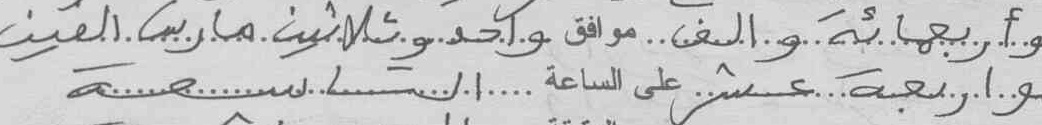 وأربعمائة و الف موافق واحد وثلاثين مارس الفين
و اربعة عشر على الساعة التاسعة